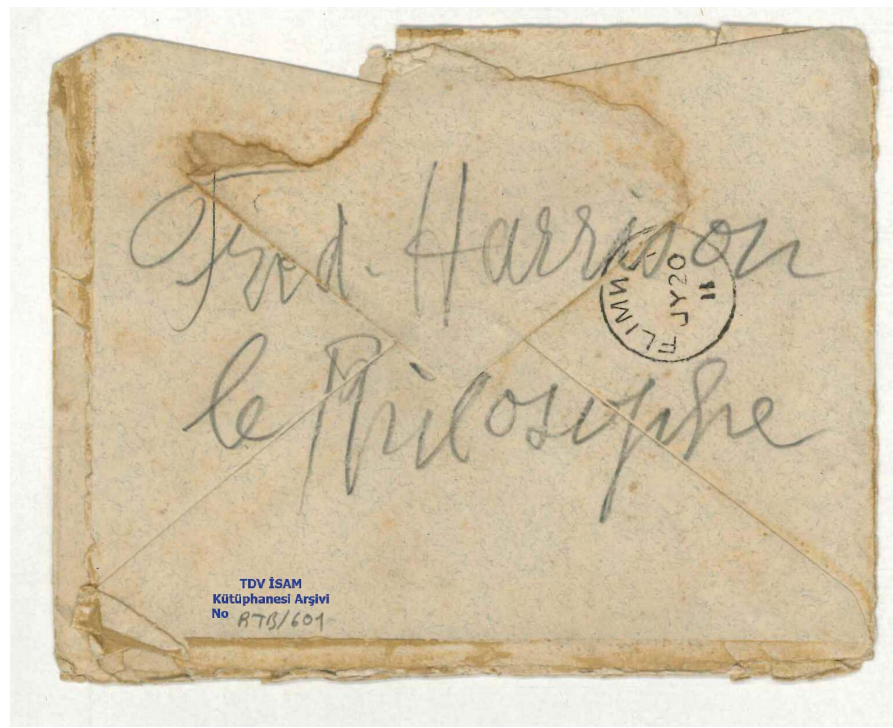 Fred. Harrison
le Philosophe
FLIMW
JY 20
11
TDV İSAM
Kütüphanesi Arşivi
No RTB/601